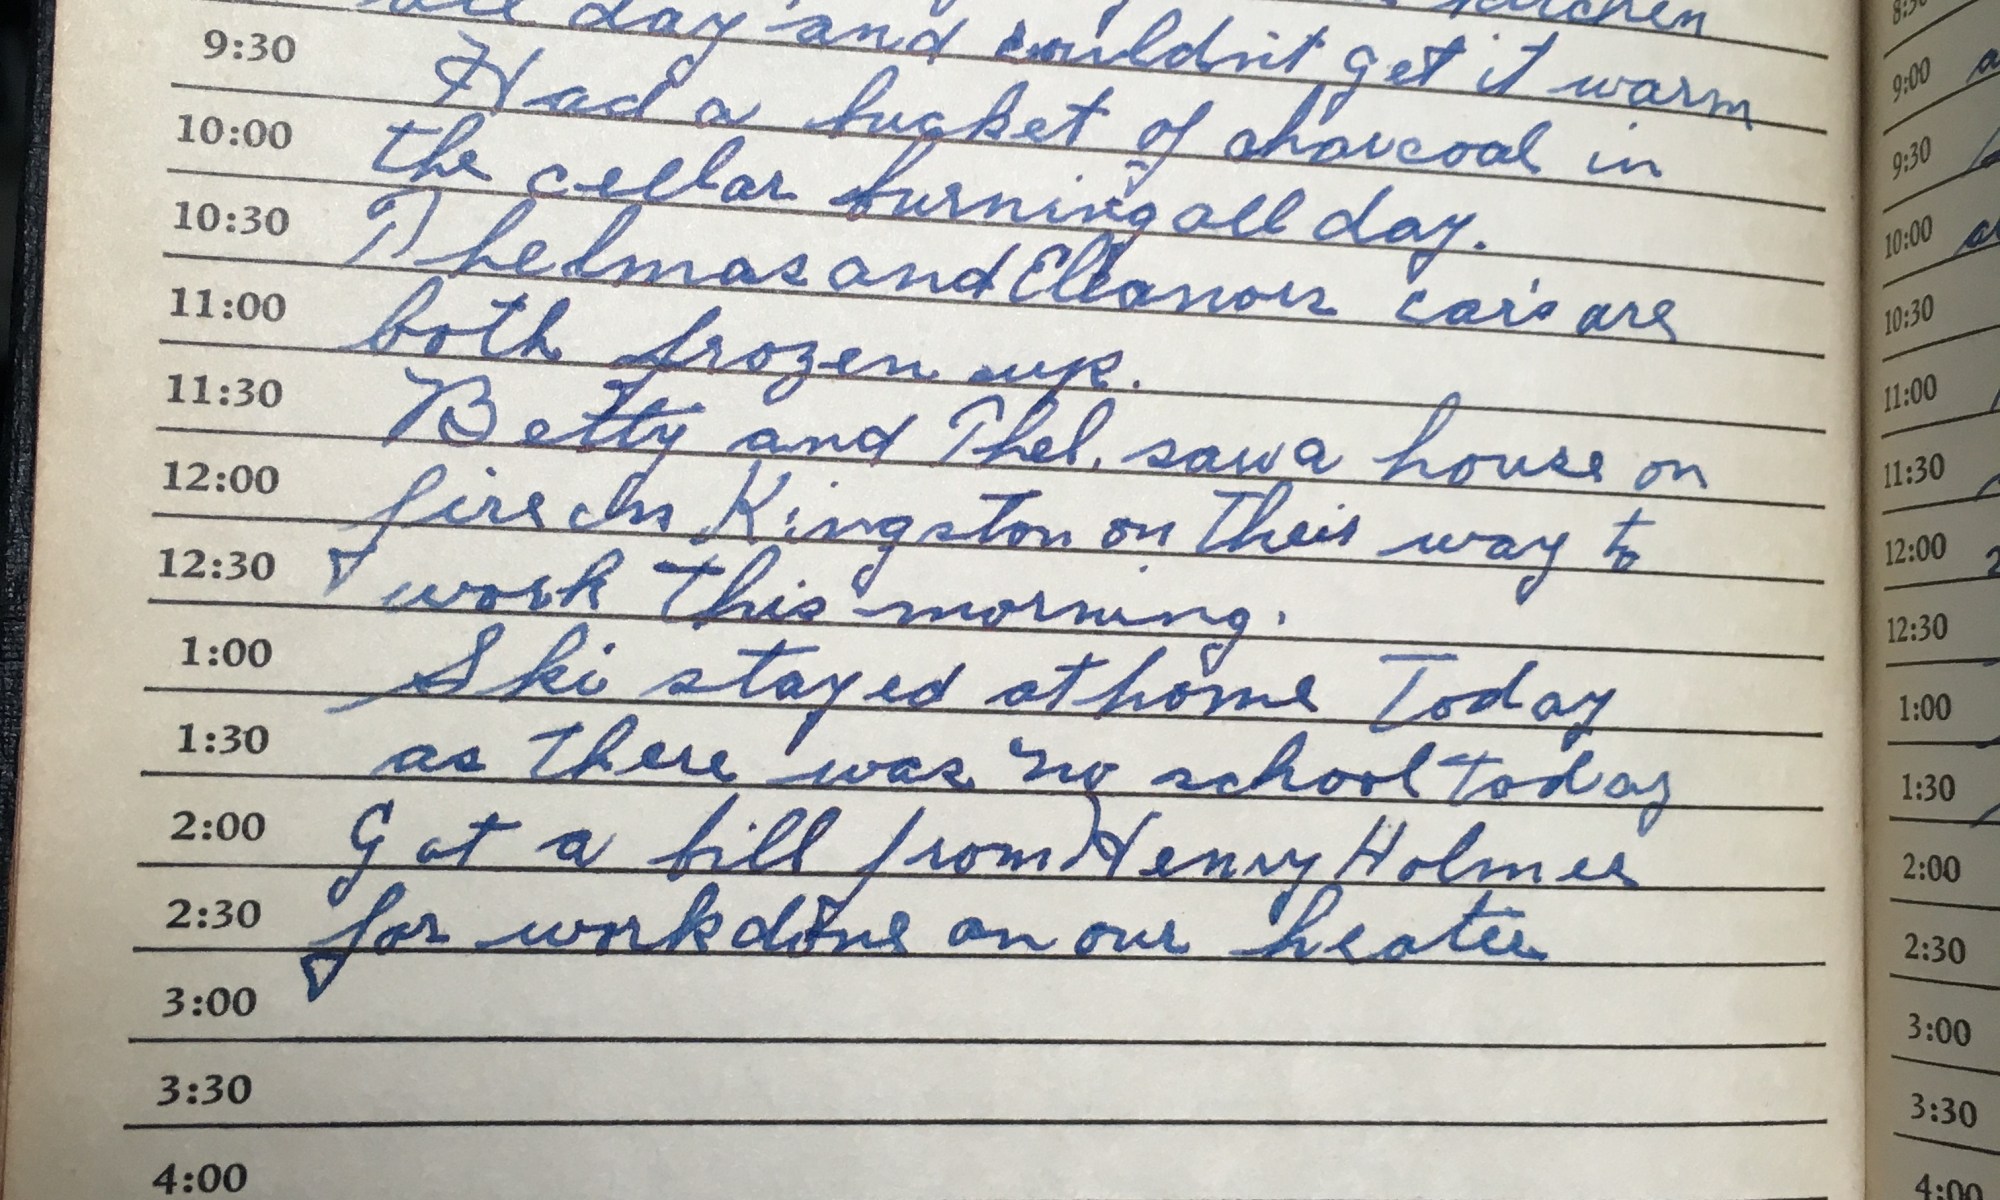 kitchen
all day and couldn't get it warm
9:30 Had a bucket of charcoal in
10:00 the cellar burning all day.
10:30 Thelmas and Eleanors car's are
11:00 both frozen up.
11:30 Betty and Thel. saw a house on
12:00 fire in Kingston on their way to
12:30 work this morning.
1:00 Ski stayed at home Today
1:30 as there was no school today
2:00 Got a bill from Henry Holmes
2:30 for work done on our heater
3:00
3:30
4:00
8:30
9:00
9:30
10:00
10:30
11:00
11:30
12:00
12:30
1:00
1:30
2:00
2:30
3:00
3:30
4:00